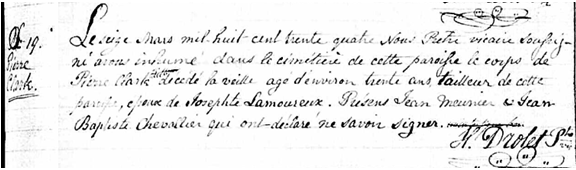 S. 19.
Pierre
Clark.
Le seize Mars mil huit cent trente quatre Nous Pretre vicaire soussig-
né avons inhumé dans le cimetière de cette paroisse le corps de
Pierre Clark décédé la veille agé d'environ trente ans, tailleur de cette
paroisse, epoux de Josephte Lamoureux. Présens Jean meunier & Jean
Baptiste Chevallier qui ont déclaré ne savoir signer.
H. Drolet Ptre